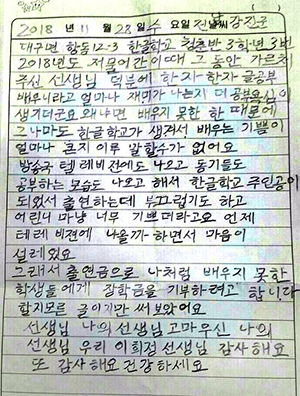 2018년 11월 28일 수 요일 날씨 강진군
대구면 항동12-3 한글학교 청춘반 3학년 3번
2018년도 저물어간이때 그동안 가르처
주신 선생님 덕분에 한지 한자 글공부
배우니라고 얼마나 재미가 나는지 더 공부욕심이
생기더군요 왜냐면 배우지 못한 한 때문에
그나마도 한글학교가 생겨서 배우는 기쁨이
얼마나 큰지 이루 말할수가 없어요
방송국 텔레비전에도 나오고 동기들도
공부하는 모습도 나오고 해서 한글학교 주인공이
되었서 출연하는데 부끄럽기도 하고
어린니 마냥 너무 기쁘더라고요 언제
테레비젼에 나올까 하면서 마음이
설레있요
그래서 출연금으로 나처럼 배우지 못한
학생들에게 장학금을 기부하려고 합니다
합지모른 글이지만 써보았어요
선생님 나의 선생님 고마우신 나의
선생님 우리 이희정 선생님 감사해요
또 감사해요 건강하세요